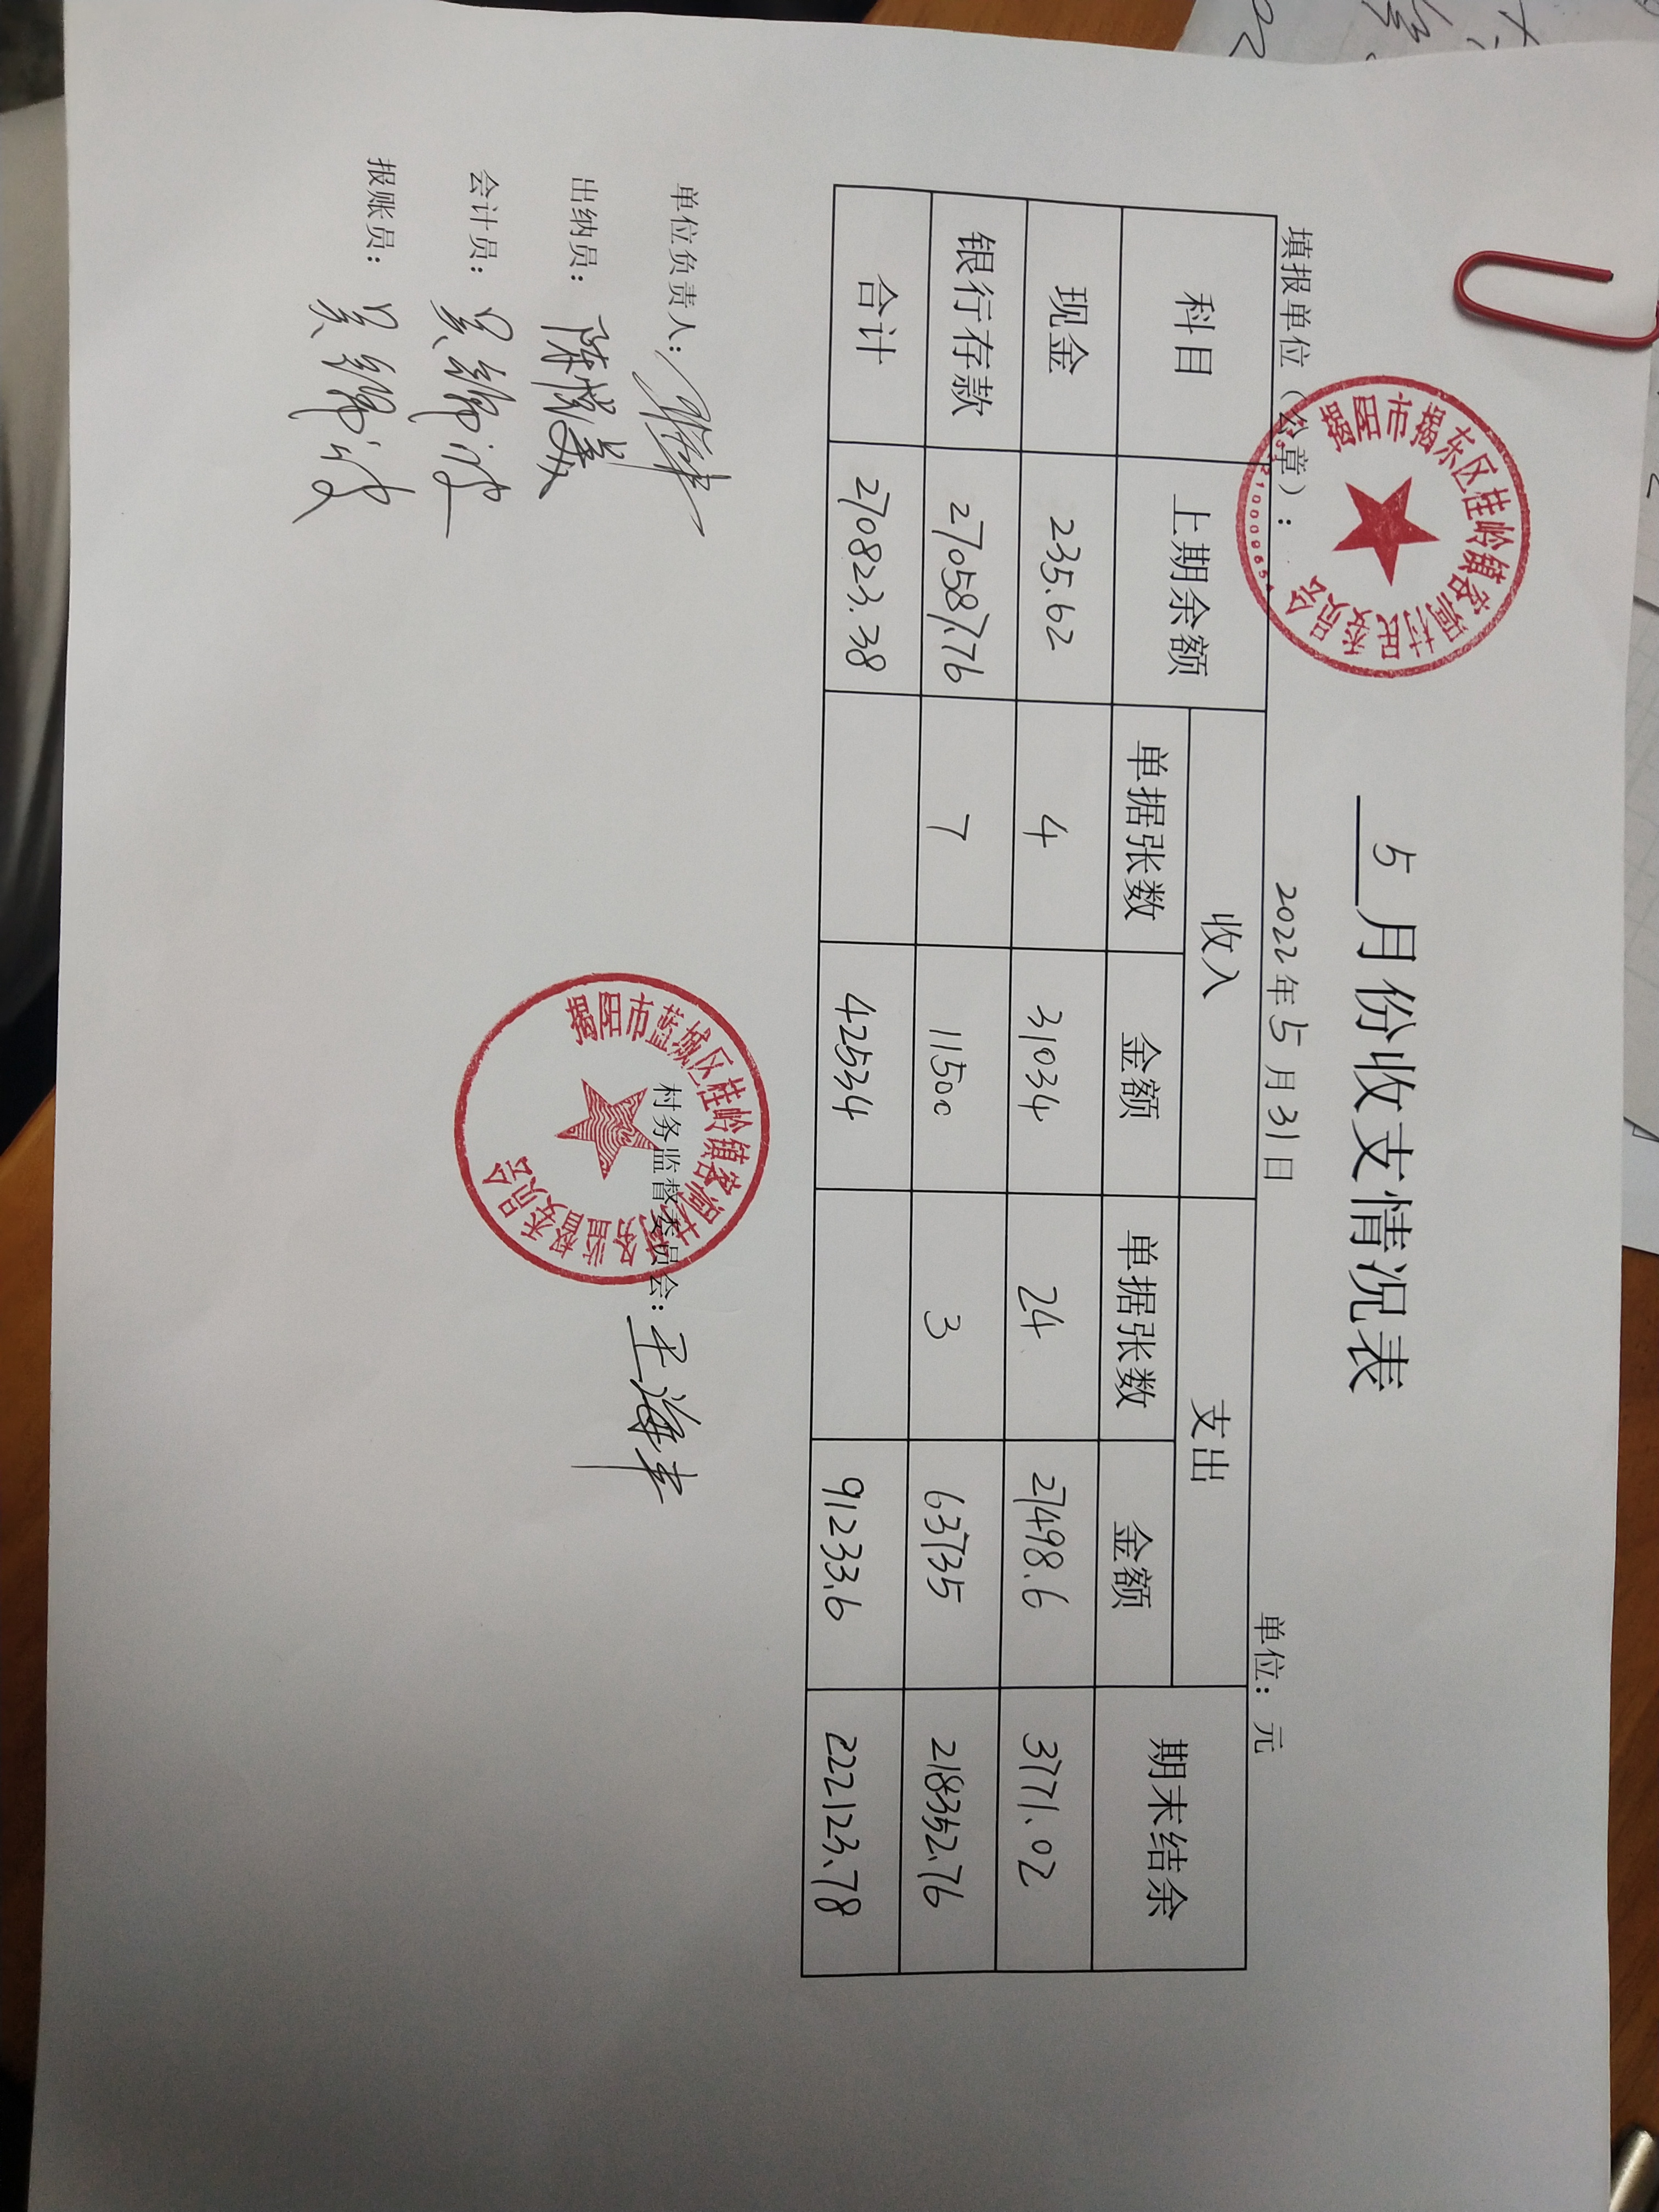 5月份收支情况表
填报单位（公章）： 2022年5月31日 单位：元
揭阳市揭东区桂岭镇客洞村民委员会
科目 上期余额 收入 支出 期末结余
单据张数 金额 单据张数 金额
现金 235.62 4 31034 24 27498.6 3771.02
银行存款 270587.76 7 11500 3 63735 218352.76
合计 270823.38 42534 91233.6 222123.78
单位负责人： 村务监督委员会：王海丰
揭阳市蓝城区桂岭镇客洞村务监督委员会
出纳员：陈悦美
会计员：吴
报账员：吴